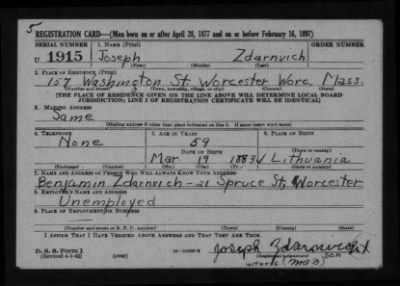 5
REGISTRATION CARD—(Men born on or after April 28, 1877 and on or before February 16, 1897)
SERIAL NUMBER 1. NAME (Print) ORDER NUMBER
U 1915 Joseph Zdarnvich
(First) (Middle) (Last)
2. PLACE OF RESIDENCE (Print)
157 Washington St. Worcester Worc. Mass.
(Number and street) (Town, township, village, or city) (County) (State)
[THE PLACE OF RESIDENCE GIVEN ON THE LINE ABOVE WILL DETERMINE LOCAL BOARD
JURISDICTION; LINE 2 OF REGISTRATION CERTIFICATE WILL BE IDENTICAL]
3. MAILING ADDRESS
Same
[Mailing address if other than place indicated on line 2. If same insert word same]
4. TELEPHONE 5. AGE IN YEARS 6. PLACE OF BIRTH
None 59
DATE OF BIRTH
Mar 19 1883 Lithuania
(Exchange) (Number) (Mo.) (Day) (Yr.) (State or country)
7. NAME AND ADDRESS OF PERSON WHO WILL ALWAYS KNOW YOUR ADDRESS
Benjamin Zdarnvich - 21 Spruce St, Worcester
8. EMPLOYER'S NAME AND ADDRESS
Unemployed
9. PLACE OF EMPLOYMENT OR BUSINESS
(Number and street or R. F. D. number) (Town) (County) (State)
I AFFIRM THAT I HAVE VERIFIED ABOVE ANSWERS AND THAT THEY ARE TRUE.
D. S. S. Form 1
(Revised 4-1-42) (over)
Joseph Zdarnvich X
son